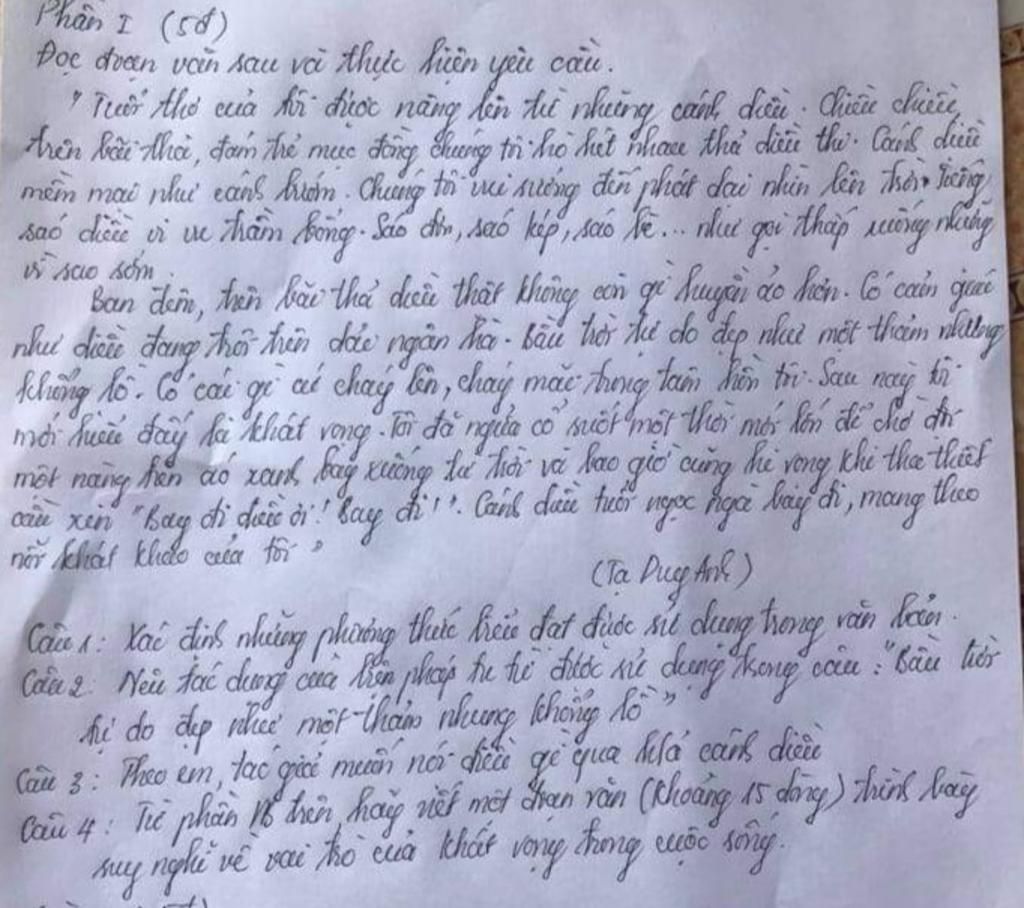 Phần I (5đ)
Đọc đoạn văn sau và thực hiện yêu cầu.
"Tuổi thơ của tôi được nâng lên từ những cánh diều. Chiều chiều,
trên bãi thả, đám trẻ mục đồng chúng tôi hò hét nhau thả diều thi. Cánh diều
mềm mại như cánh bướm. Chúng tôi vui sướng đến phát dại nhìn lên trời. Tiếng
sáo diều vi vu trầm bổng. Sáo đơn, sáo kép, sáo bè... như gọi thấp xuống những
vì sao sớm.
Ban đêm, trên bãi thả diều thật không còn gì huyền ảo hơn. Có cảm giác
như diều đang trôi trên dải ngân hà. Bầu trời tự do đẹp như một thảm nhung
khổng lồ. Có cái gì cứ cháy lên, cháy mãi trong tâm hồn tôi. Sau này tôi
mới hiểu đấy là khát vọng. Tôi đã ngửa cổ suốt một thời mới lớn để chờ đợi
một nàng tiên áo xanh bay xuống từ trời và bao giờ cũng hi vọng khi tha thiết
cầu xin "Bay đi diều ơi! Bay đi!". Cánh diều tuổi ngọc ngà bay đi, mang theo
nỗi khát khao của tôi"
(Tạ Duy Anh)
Câu 1: Xác định những phương thức biểu đạt được sử dụng trong văn bản.
Câu 2: Nêu tác dụng của biện pháp tu từ được sử dụng trong câu: "Bầu trời
tự do đẹp như một thảm nhung khổng lồ"
Câu 3: Theo em, tác giả muốn nói điều gì qua h/ả cánh diều
Câu 4: Từ phần VB trên, hãy viết một đoạn văn (khoảng 15 dòng) trình bày
suy nghĩ về vai trò của khát vọng trong cuộc sống.